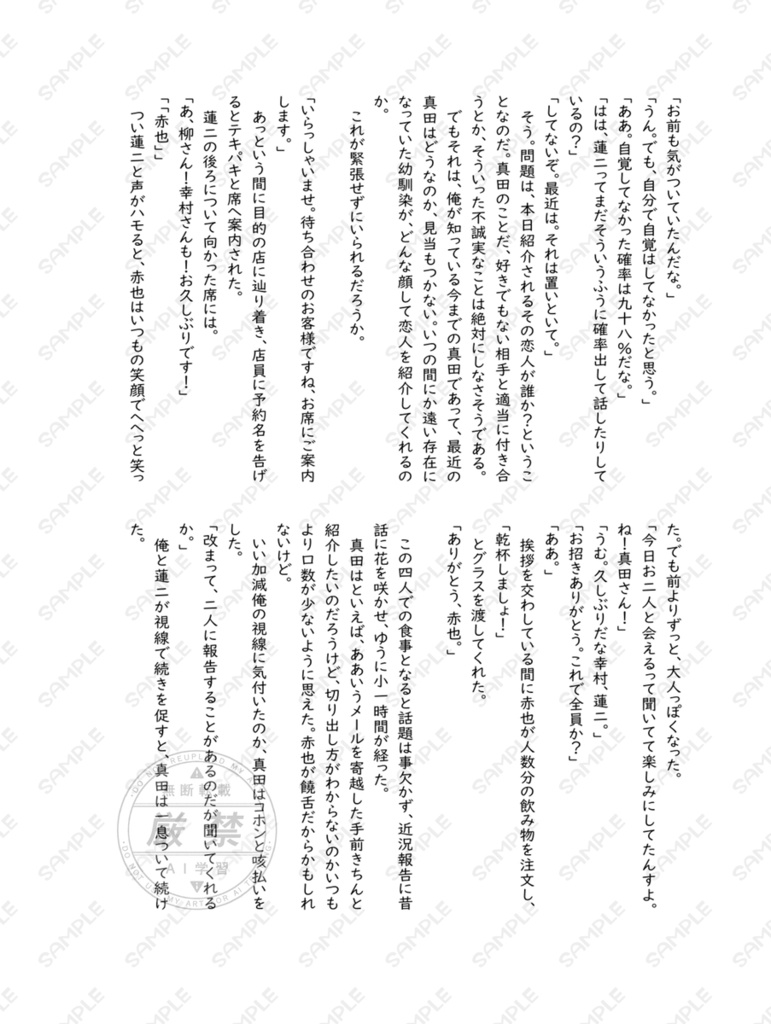 「お前も気がついていたんだな。」
「うん。でも、自分で自覚はしてなかったと思う。」
「ああ。自覚してなかった確率は九十八％だな。」
「はは、蓮二ってまだそういうふうに確率出して話したりして
いるの？」
「してないぞ。最近は。それは置いといて。」
そう。問題は、本日紹介されるその恋人が誰か？というこ
となのだ。真田のことだ、好きでもない相手と適当に付き合
うとか、そういった不誠実なことは絶対にしなさそうである。
でもそれは、俺が知っている今までの真田であって、最近の
真田はどうなのか、見当もつかない。いつの間にか遠い存在に
なっていた幼馴染が、どんな顔して恋人を紹介してくれるの
か。
これが緊張せずにいられるだろうか。
「いらっしゃいませ。待ち合わせのお客様ですね、お席にご案内
します。」
あっという間に目的の店に辿り着き、店員に予約名を告げ
るとテキパキと席へ案内された。
蓮二の後ろについて向かった席には。
「あ、柳さん！幸村さんも！お久しぶりです！」
「「赤也」」
つい蓮二と声がハモると、赤也はいつもの笑顔でへへっと笑っ
た。でも前よりずっと、大人っぽくなった。
「今日お二人と会えるって聞いてて楽しみにしてたんすよ。
ね！真田さん！」
「うむ。久しぶりだな幸村、蓮二。」
「お招きありがとう。これで全員か？」
「ああ。」
挨拶を交わしている間に赤也が人数分の飲み物を注文し、
「乾杯しましょ！」
とグラスを渡してくれた。
「ありがとう、赤也。」
この四人での食事となると話題は事欠かず、近況報告に昔
話に花を咲かせ、ゆうに小一時間が経った。
真田はといえば、ああいうメールを寄越した手前きちんと
紹介したいのだろうけど、切り出し方がわからないのかいつも
より口数が少ないように思えた。赤也が饒舌だからかもしれ
ないけど。
いい加減俺の視線に気付いたのか、真田はコホンと咳払いを
した。
「改まって、二人に報告することがあるのだが聞いてくれる
か。」
俺と蓮二が視線で続きを促すと、真田は一息ついて続け
た。
SAMPLE
無断転載
厳禁
AI学習